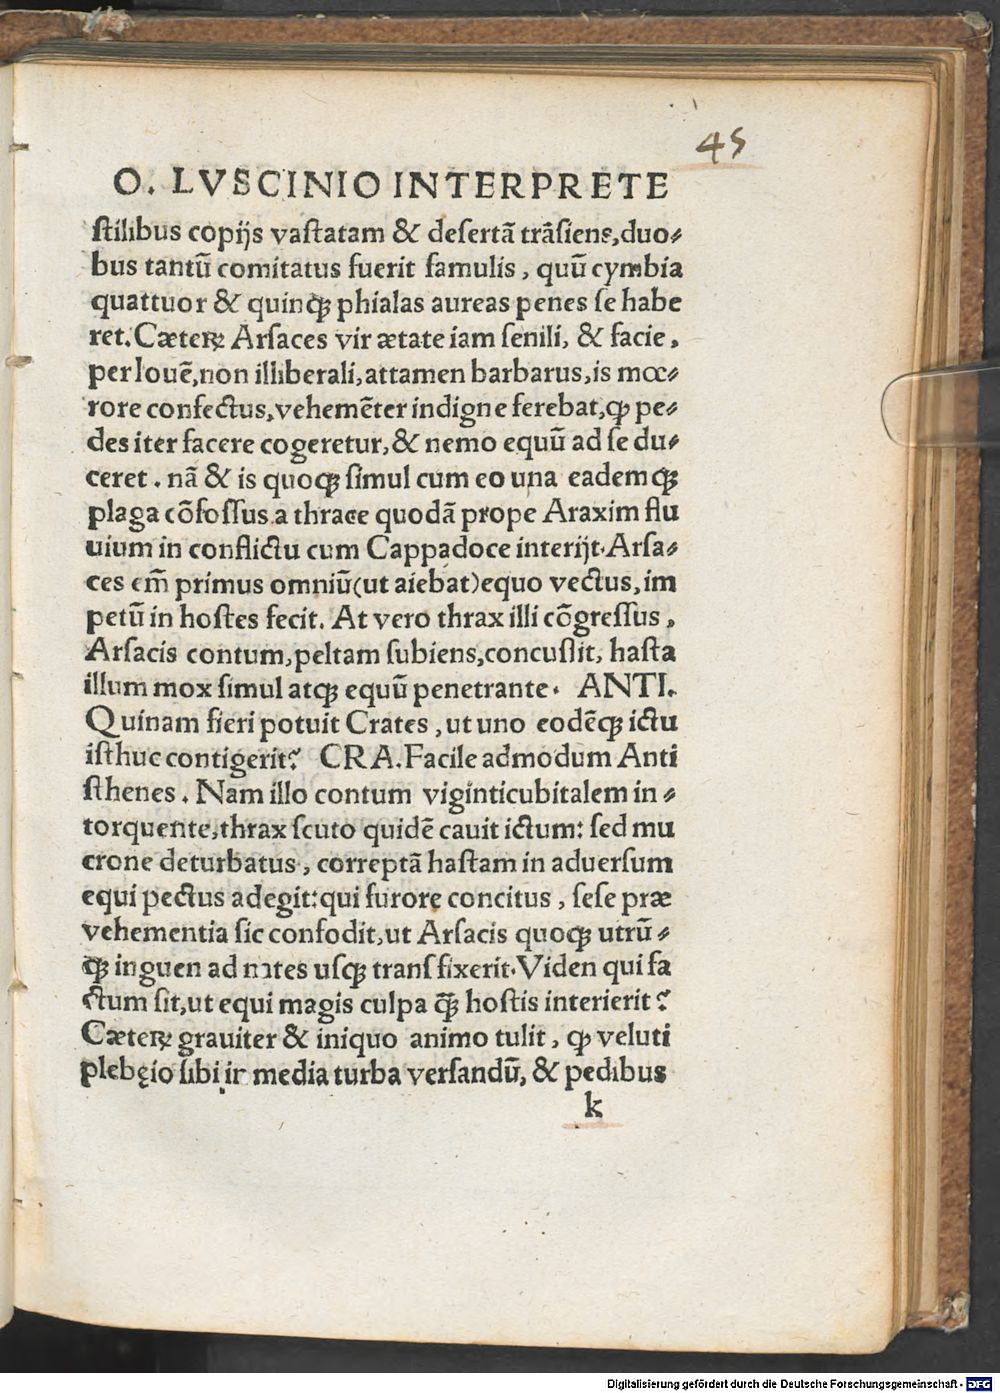 45
O. LVSCINIO INTERPRETE
ſtilibus copijs vaſtatam & deſertā trāſiens,duo⸗
bus tantū comitatus fuerit famulis, quū cymbia
quattuor & quinqꝫ phialas aureas penes ſe habe
ret. Cæteꝝ Arſaces vir ætate iam ſenili, & facie,
per Iouē,non illiberali,attamen barbarus,is mœ⸗
rore confectus,vehemēter indigne ferebat,ꝙ pe⸗
des iter facere cogeretur,& nemo equū ad ſe du⸗
ceret. nā & is quoqꝫ ſimul cum eo una eademqꝫ
plaga cōfoſſus a thrace quodā prope Araxim flu
uium in conflictu cum Cappadoce interijt. Arſa⸗
ces em̄ primus omniū(ut aiebat)equo vectus, im
petū in hoſtes fecit. At vero thrax illi cōgreſſus,
Arſacis contum,peltam ſubiens,concuſſit, haſta
illum mox ſimul atqꝫ equū penetrante. ANTI.
Quínam fieri potuit Crates, ut uno eodēqꝫ ictu
iſthuc contigerit? CRA. Facile admodum Anti
ſthenes. Nam illo contum viginticubitalem in⸗
torquente,thrax ſcuto quidē cauit ictum: ſed mu
crone deturbatus, correptā haſtam in aduerſum
equi pectus adegit:qui furore concitus, ſeſe præ
vehementia ſic confodit,ut Arſacis quoqꝫ utrū⸗
qꝫ inguen ad nates uſqꝫ transfixerit. Viden qui fa
ctum ſit,ut equi magis culpa q̄ꝫ hoſtis interierit?
Cæteꝝ grauiter & iniquo animo tulit, ꝙ veluti
plebęio ſibi in media turba verſandū, & pedibus
k
Digitalisierung gefördert durch die Deutsche Forschungsgemeinschaft - DFG